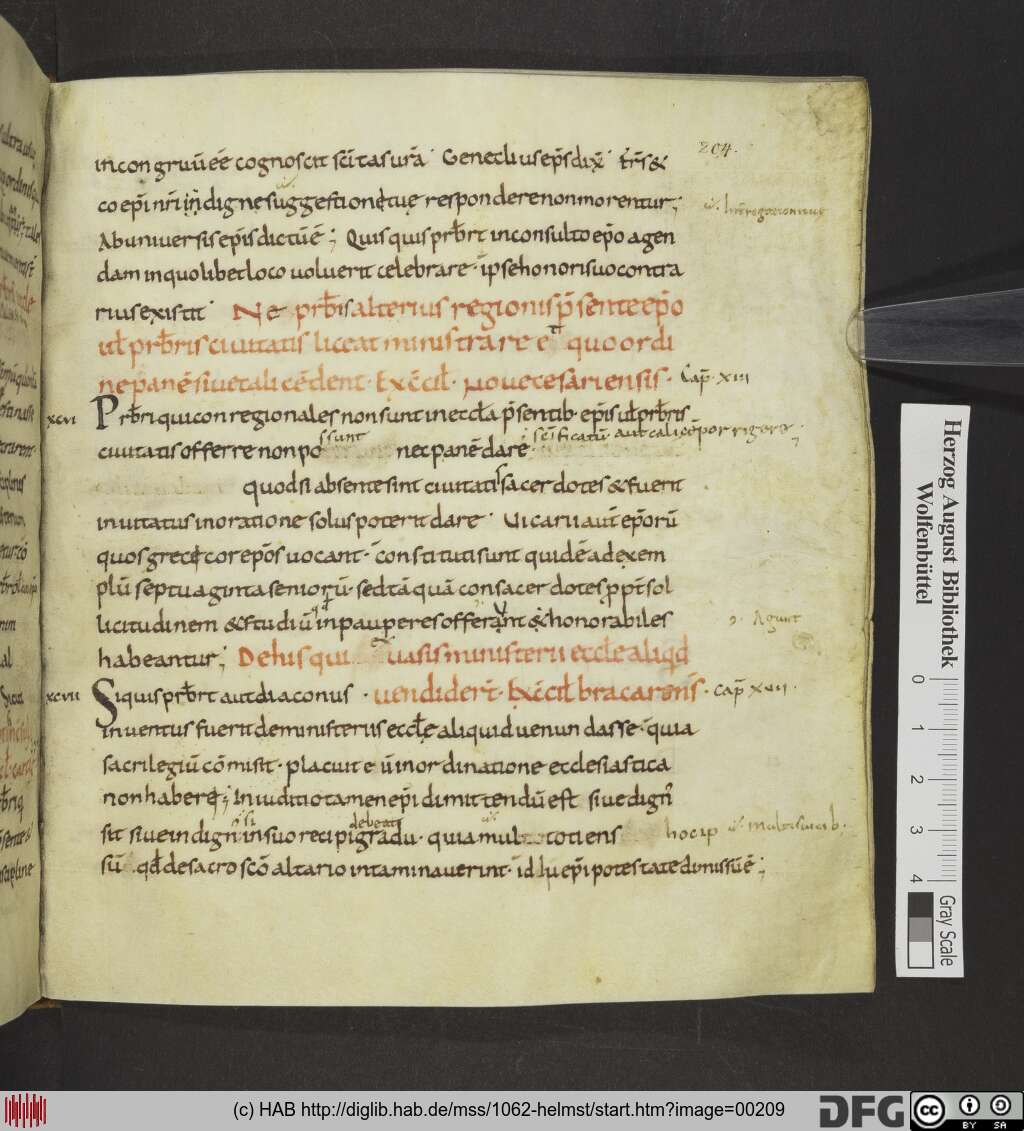 204.
incongruū eē cognoscit scītas urā. Genecliusep̄s dix̄. fr̄s &
coep̄i nr̄i indigne suggestioni tuę respondere non morentur;
Ab universis ep̄is dictū ē; Quisquis pr̄bt inconsulto ep̄o agen
dam in quolibet loco voluerit celebrare. ipse honori suo contra
rius existit. Ne pr̄bis alterius regionis p̄sente ep̄o
ut pr̄bris civitatis liceat ministrare et quo ordi
ne panē sive talicē dent. Ex c̄cil. novecesariensis. Cap̄. XIII
xcvi Pr̄bri qui conregionales non sunt in eccła p̄sentib. ep̄is ut pr̄bris
civitatis offerre non possunt nec panē dare sc̄ificatū. aut calicē porrigere;
quod si absentes int civitatis sacerdotes & fuerit
invitatus in oratione solus poterit dare. Vicarii aut̄ ep̄orū
quos greci corep̄os vocant. constituti sunt quidē ad exem
plū septuaginta seniorū. sed tāquā consacerdotes ppt̄ sol
licitudinem & studiū in pauperes offerant & honorabiles
Agunt
habeantur; De his qui vasis ministerii eccłe aliqd
vendider̄t. Ex c̄cil bracarens̄. Cap̄ XVII.
xcvii Siquis pr̄brt aut diaconus
inventus fuerit de ministeriis eccłe aliquid venundasse. quia
sacrilegiū cōmisit. placuit eū in ordinatione ecclesiastica
non habere; In iuditio tamen ep̄i dimittendū est sive dign̄
sit sive indign in suo recipi debeat gradu. quia mul totiens hoc ip
sū qd de sacroscō altario intaminaverint. id in ep̄i potestate dimissū ē;
Herzog August Bibliothek
Wolfenbüttel
0 1 2 3 4
Gray Scale
(c) HAB http://diglib.hab.de/mss/1062-helmst/start.htm?image=00209
DFG
cc
BY SA